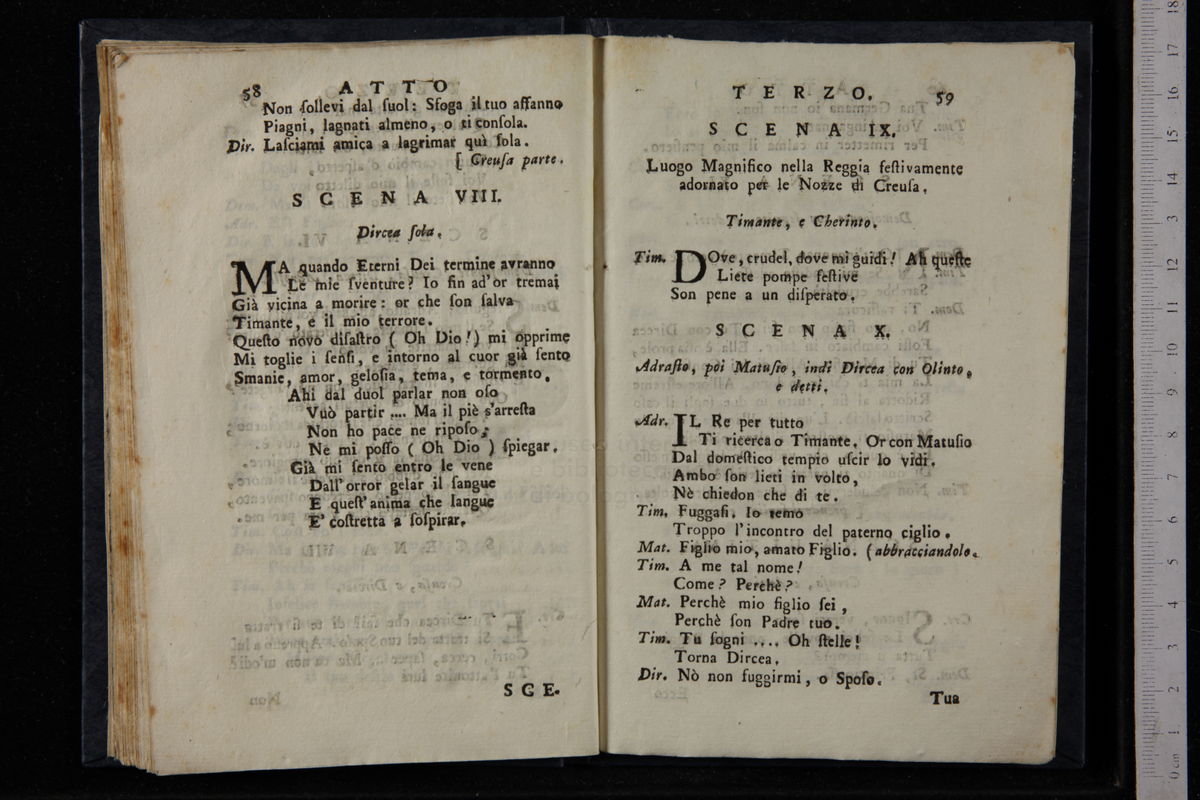 58 ATTO
Non ſollevi dal ſuol: Sfoga il tuo affanno
Piagni, lagnati almeno, o ti conſola.
Dir. Laſciami amica a lagrimar quì ſola.
[ Creuſa parte.
SCENA VIII.
Dircea ſola.
MA quando Eterni Dei termine avranno
Le mie ſventure? Io fin ad'or tremai
Già vicina a morire: or che ſon ſalva
Timante, e il mio terrore.
Queſto novo diſaſtro ( Oh Dio!) mi opprime
Mi toglie i ſenſi, e intorno al cuor già ſento
Smanie, amor, geloſia, tema, e tormento.
Ahi dal duol parlar non oſo
Vuò partir .... Ma il piè s'arreſta
Non ho pace ne ripoſo;
Ne mi poſſo ( Oh Dio ) ſpiegar.
Già mi ſento entro le vene
Dall'orror gelar il ſangue
E queſt'anima che langue
E' coſtretta a ſoſpirar.
SCE.
TERZO. 59
SCENA IX.
Luogo Magnifico nella Reggia feſtivamente
adornato per le Nozze di Creuſa.
Timante, e Cherinto.
Tim. DOve, crudel, dove mi guidi! Ah queſte
Liete pompe feſtive
Son pene a un diſperato.
SCENA X.
Adraſto, poi Matuſio, indi Dircea con Olinto,
e detti.
Adr. IL Re per tutto
Ti ricerca o Timante. Or con Matuſio
Dal domeſtico tempio uſcir lo vidi.
Ambo ſon lieti in volto,
Nè chiedon che di te.
Tim. Fuggaſi. Io temo
Troppo l'incontro del paterno ciglio.
Mat. Figlio mio, amato Figlio. (abbracciandolo.
Tim. A me tal nome!
Come? Perchè?
Mat. Perchè mio figlio ſei,
Perchè ſon Padre tuo.
Tim. Tu ſogni .... Oh ſtelle!
Torna Dircea.
Dir. Nò non fuggirmi, o Spoſo.
Tua